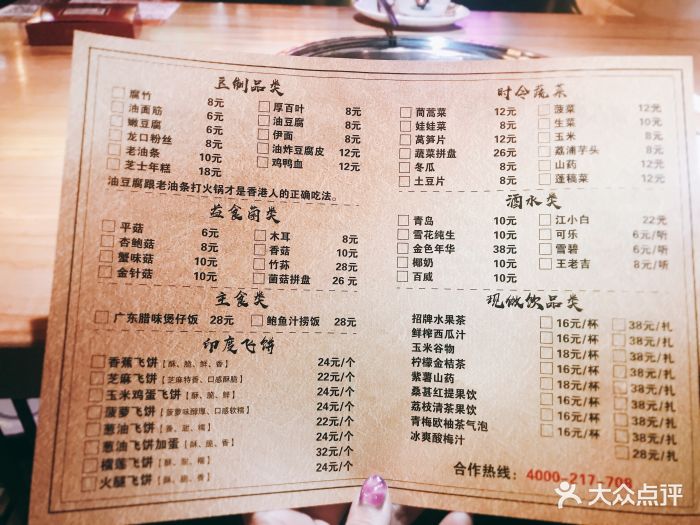 豆制品类
腐竹 8元
油面筋 6元
嫩豆腐 6元
龙口粉丝 8元
老油条 10元
芝士年糕 18元
厚百叶 8元
油豆腐 8元
伊面 8元
油炸豆腐皮 12元
鸡鸭血 12元
油豆腐跟老油条打火锅才是香港人的正确吃法。
益食菌类
平菇 6元
杏鲍菇 8元
蟹味菇 10元
金针菇 10元
木耳 8元
香菇 10元
竹荪 28元
菌菇拼盘 26元
主食类
广东腊味煲仔饭 28元
鲍鱼汁捞饭 28元
印度飞饼
香蕉飞饼【酥、脆、鲜、香】 24元/个
芝麻飞饼【芝麻特香、口感酥脆】 22元/个
玉米鸡蛋飞饼【酥、脆、鲜】 24元/个
菠萝飞饼【菠萝味醇厚、口感软糯】 24元/个
葱油飞饼【香、甜、糯】 22元/个
葱油飞饼加蛋【酥、脆、香】 24元/个
榴莲飞饼【酥、甜、糯】 32元/个
火腿飞饼【酥、脆、香】 24元/个
时令蔬菜
茼蒿菜 12元
娃娃菜 8元
莴笋片 12元
蔬菜拼盘 26元
冬瓜 8元
土豆片 8元
菠菜 12元
生菜 10元
玉米 8元
荔浦芋头 8元
山药 12元
蓬稿菜 12元
酒水类
青岛 10元
雪花纯生 10元
金色年华 38元
椰奶 10元
百威 10元
江小白 22元
可乐 6元/听
雪碧 6元/听
王老吉 8元/听
现做饮品类
招牌水果茶 16元/杯 38元/扎
鲜榨西瓜汁 16元/杯 38元/扎
玉米谷物 16元/杯 38元/扎
柠檬金桔茶 16元/杯 38元/扎
紫薯山药 18元/杯 38元/扎
桑葚红提果饮 16元/杯 38元/扎
荔枝清茶果饮 16元/杯 38元/扎
青梅欧柚茶气泡 18元/杯 38元/扎
冰爽酸梅汁 28元/扎
合作热线：4000-217-708
大众点评